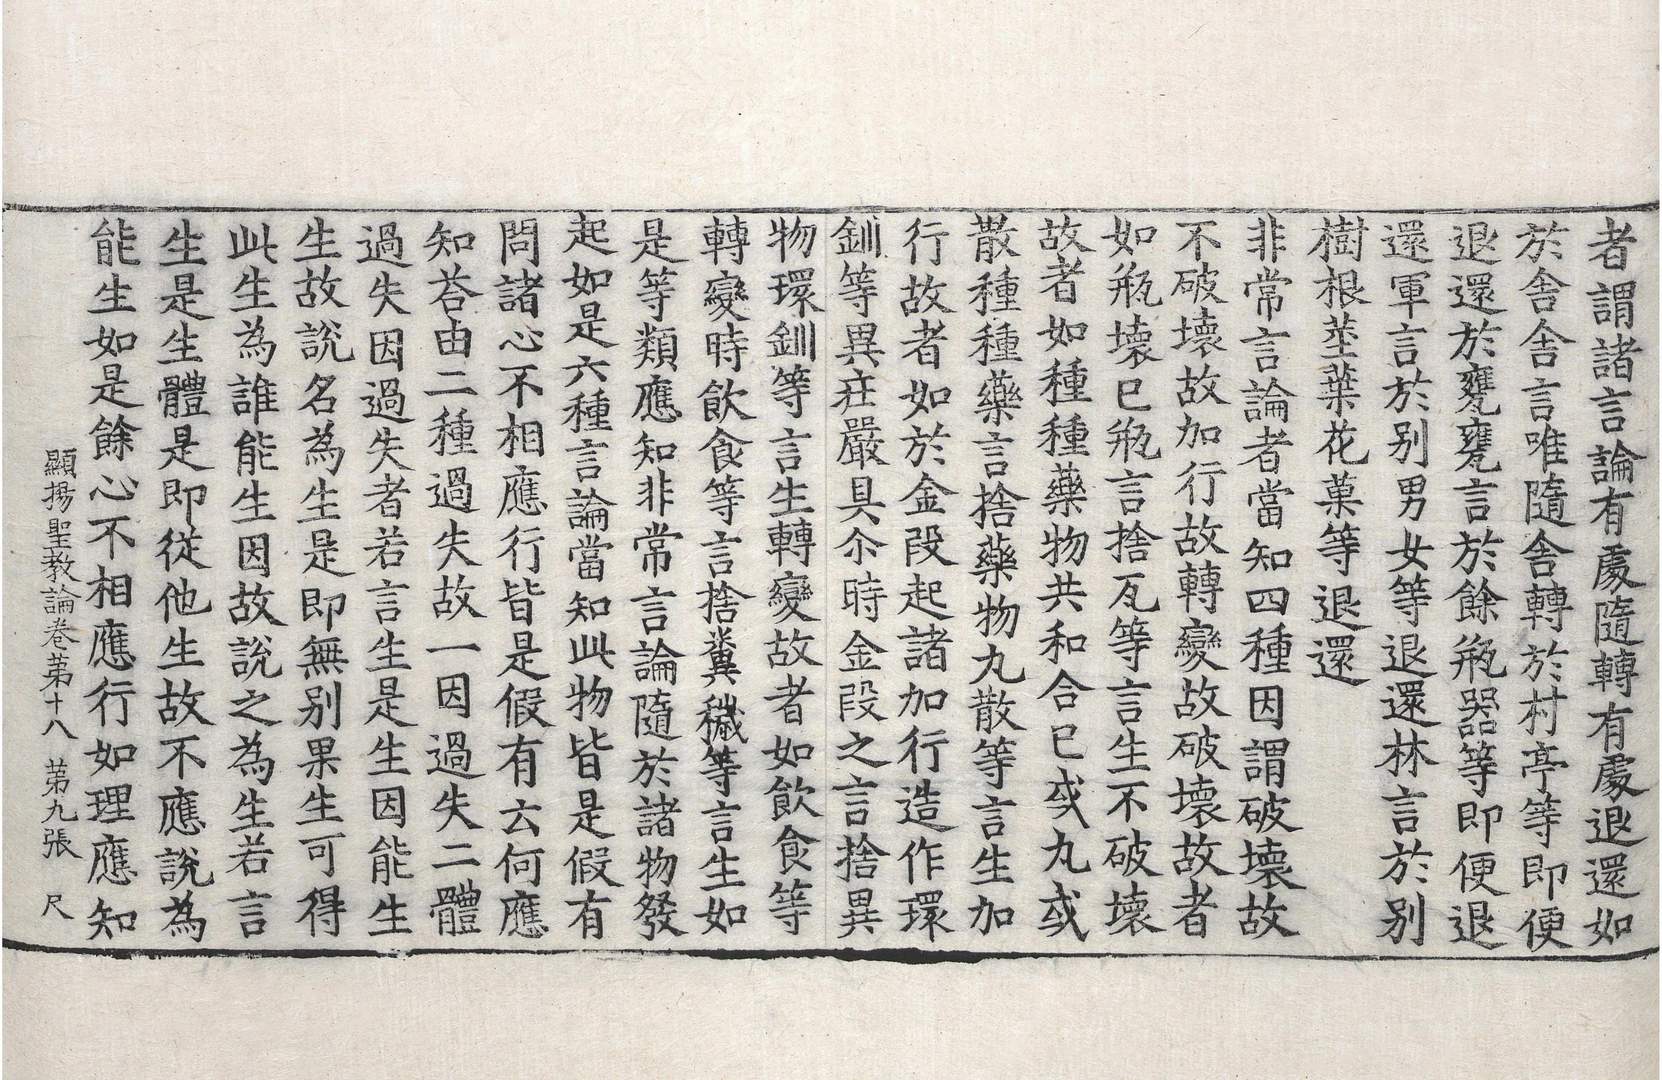 者謂諸言論有處隨轉有處退還如
於舍舍言唯隨舍轉於村亭等即便
退還於甕甕言於餘瓶器等即便退
還軍言於别男女等退還林言於别
樹根莖葉花菓等退還
非常言論者當知四種因謂破壞故
不破壞故加行故轉變故破壞故者
如瓶壞已瓶言捨瓦等言生不破壞
故者如種種藥物共和合已或丸或
散種種藥言捨藥物丸散等言生加
行故者如於金段起諸加行造作環
釧等異莊嚴具尒時金段之言捨異
物環釧等言生轉變故者如飲食等
轉變時飲食等言捨糞穢等言生如
是等類應知非常言論隨於諸物發
起如是六種言論當知此物皆是假有
問諸心不相應行皆是假有云何應
知荅由二種過失故一因過失二體
過失因過失者若言生是生因能生
生故說名為生是即無别果生可得
此生為誰能生因故說之為生若言
生是生體是即從他生故不應說為
能生如是餘心不相應行如理應知
顯揚聖教論卷第十八 第九張 尺